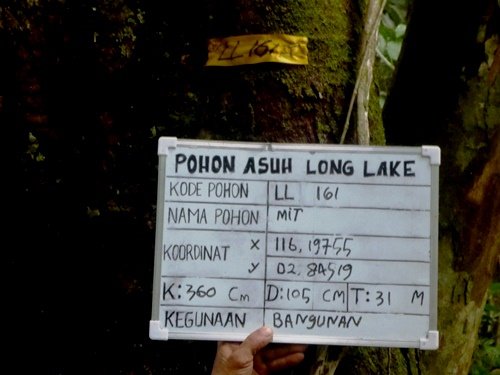 LL 161
POHON ASUH LONG LAKE
KODE POHON LL 161
NAMA POHON MIT
KOORDINAT X 116,19755
Y 02,84519
K: 360 Cm D: 105 CM T: 31 M
KEGUNAAN BANGUNAN